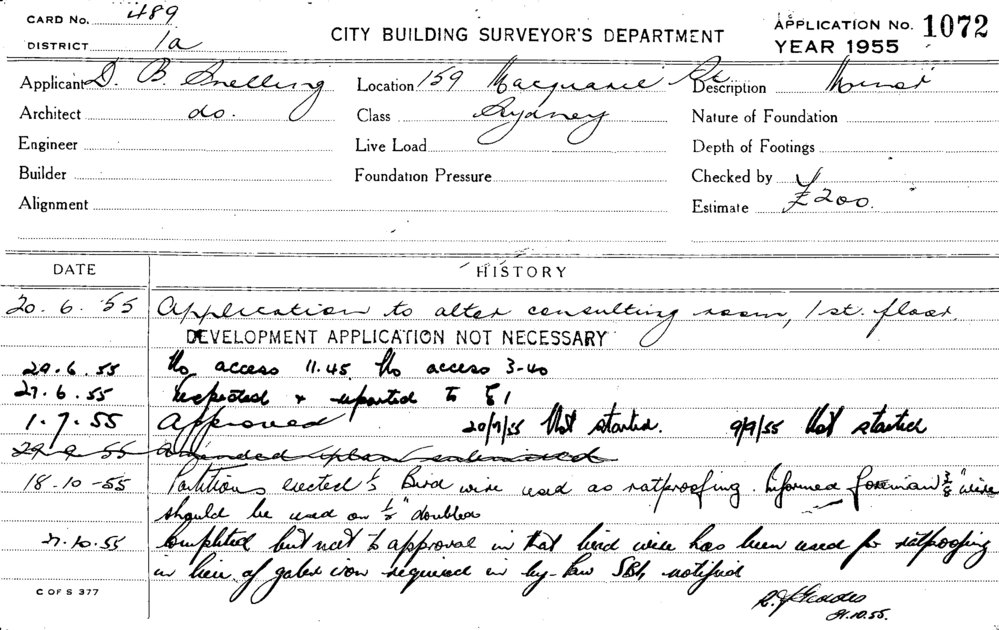 CARD No. 489
DISTRICT 1a
CITY BUILDING SURVEYOR'S DEPARTMENT
APPLICATION No. 1072
YEAR 1955
Applicant D. B. Snelling Location 159 Macquarie St Description Minor
Architect do. Class Sydney Nature of Foundation
Engineer Live Load Depth of Footings
Builder Foundation Pressure Checked by
Alignment Estimate £200.
DATE HISTORY
20. 6. 55 Application to alter consulting room, 1st. floor.
DEVELOPMENT APPLICATION NOT NECESSARY
24.6.55 No access 11.45 No access 3-40
27.6.55 Inspected & reported to E1
1.7.55 Approved 20/7/55 Not started. 9/9/55 Not started
29 9 55 Amended plan submitted
18-10-55 Partitions erected ½ Bird wire used as ratproofing. Informed foreman ⅜" wire
should be used or ½" doubled
27.10.55 Completed but not to approval in that bird wire has been used for ratproofing
in lieu of galvd iron required in by-law SBI, notified
C OF S 377